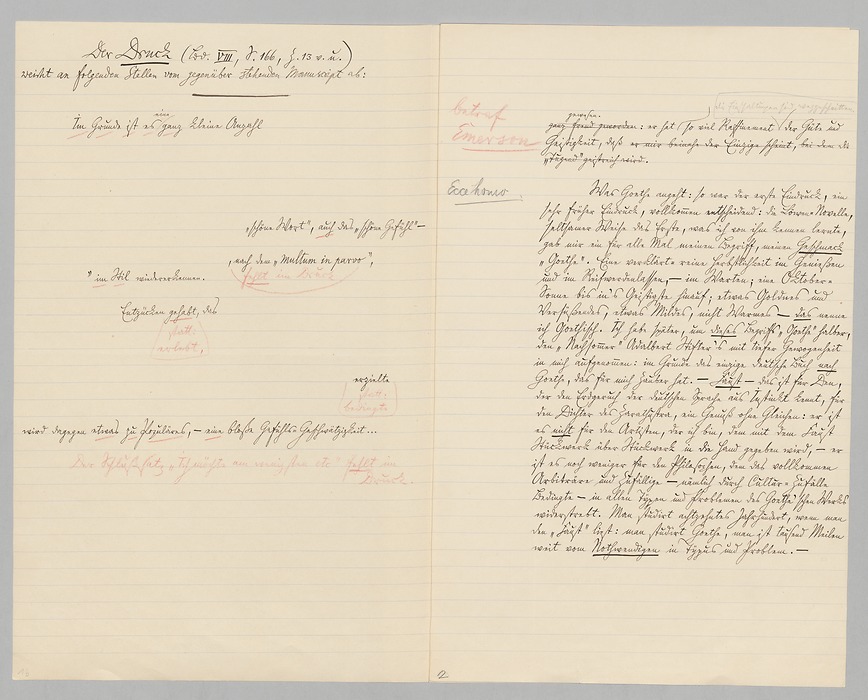 Der Druck (Bd. VIII, S. 166, Z. 13 v. u.)
weicht an folgenden Stellen vom gegenüber stehenden Manuscript ab:
eine
Im Grunde ist es ganz kleine Anzahl
„schöne Wort“, auch das „schöne Gefühl“ –
, nach dem „multum in parvo“,
fehlt im Druck
" im Stil wiedererkennen.
Entzücken gehabt, das
statt:
erlebt,
erzielte
statt:
bedingte
wird dagegen etwas zu Populäres, – eine bloße Gefühls-Geschwätzigkeit...
Der Schlußsatz „Ich möchte am wenigsten etc“ fehlt im
Druck.
betraf
Emerson
gewesen.
ganz fremd geworden: er hat so viel Raffinement der Güte und
Geistigkeit, daß er mir beinahe der Einzige scheint, bei dem die
„Tugend“ geistreich wird.
Ecce homo.
Was Goethe angeht: so war der erste Eindruck, ein
sehr früher Eindruck, vollkommen entscheidend: die Löwen-Novelle,
seltsamer Weise das Erste, was ich von ihm kennen lernte,
gab mir ein für alle Mal meinen Begriff, meinen Geschmack
„Goethe“. Eine verklärt-reine Herbstlichkeit im Genießen
und im Reifwerdenlassen, – im Warten; eine Oktober-
Sonne bis in's Geistigste hinauf; etwas Goldnes und
Versüßendes, etwas Mildes, nicht Marmor – das nenne
ich Goethisch. Ich habe später, um dieses Begriffs „Goethe“ halber,
den „Nachsommer“ Adalbert Stifter's mit tiefer Gewogenheit
in mich aufgenommen: im Grunde das einzige deutsche Buch nach
Goethe, das für mich Zauber hat. – Faust – das ist für Den,
der den Erdgeruch der deutschen Sprache aus Instinkt kennt, für
den Dichter des Zarathustra, ein Genuß ohne Gleichen: er ist
es nicht für den Artisten, der ich bin, dem mit dem Faust
Stückwerk über Stückwerk in die Hand gegeben wird, – er
ist es noch weniger für den Philosophen, dem das vollkommen
Arbiträre und Zufällige – nämlich durch Cultur-Zufälle
Bedingte – in allen Typen und Problemen des Goethe'schen Werks
widerstrebt. Man studirt achtzehntes Jahrhundert, wenn man
den „Faust“ liest: man studirt Goethe, man ist tausend Meilen
weit vom Nothwendigen in Typus und Problem. –
2